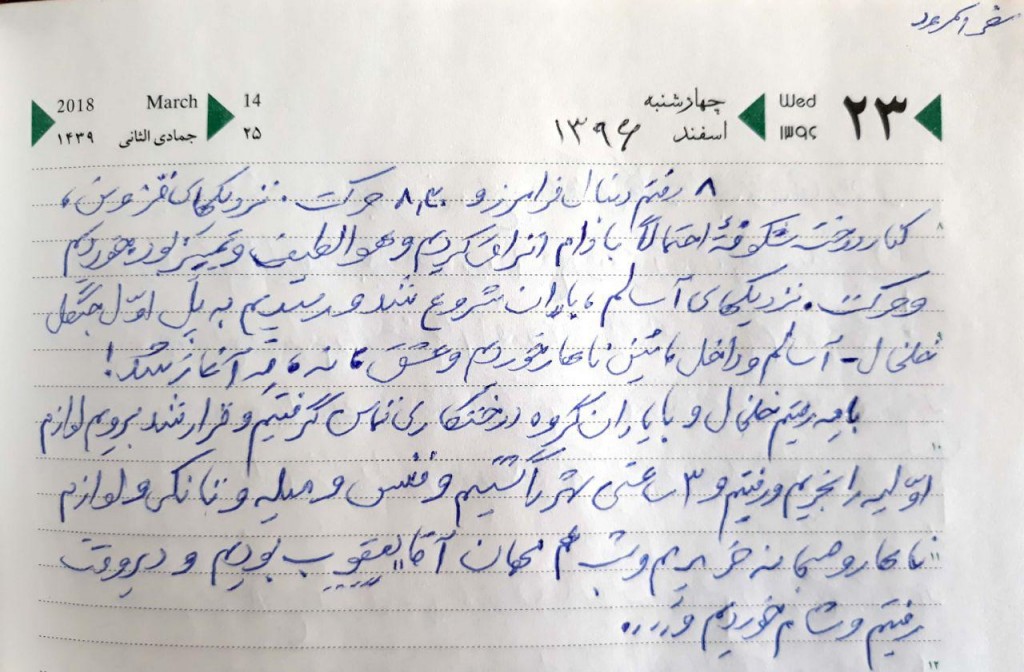 سفر اَمرود
۲۳ Wed ۱۳۹۶ چهارشنبه اسفند ۱۳۹۶ 14 ۲۵ March جمادی الثانی 2018 ۱۴۳۹
۸ رفتم دنبال فرامرز و ۸٫۴۰ حرکت. نزدیکهای قزوین،
کنار درخت شکوفهٔ احتمالاً بادام اتراق کردیم و هوا لطیف و تمیز بود. خوردیم
و حرکت. نزدیکهای آسالم، باران شروع شد و رسیدیم به پل اوّل جنگل
خلخال - آسالم و داخل ماشین ناهار خوردیم و عشق ما نه، مِه آغاز شد!
با مِه رفتیم خلخال و با یاران گروه درختکاری تماس گرفتیم و قرار شد برویم لوازم
اوّلیه را بخریم و رفتیم و ۳ ساعتی شهر را گشتیم و فنس و میله و تانکر و لوازم
ناهار و صبحانه خریدیم و شب هم مهمان آقا یعقوب بودیم و دیروقت
رفتیم و شام خوردیم و....
۸
۹
۱۰
۱۱
۱۲